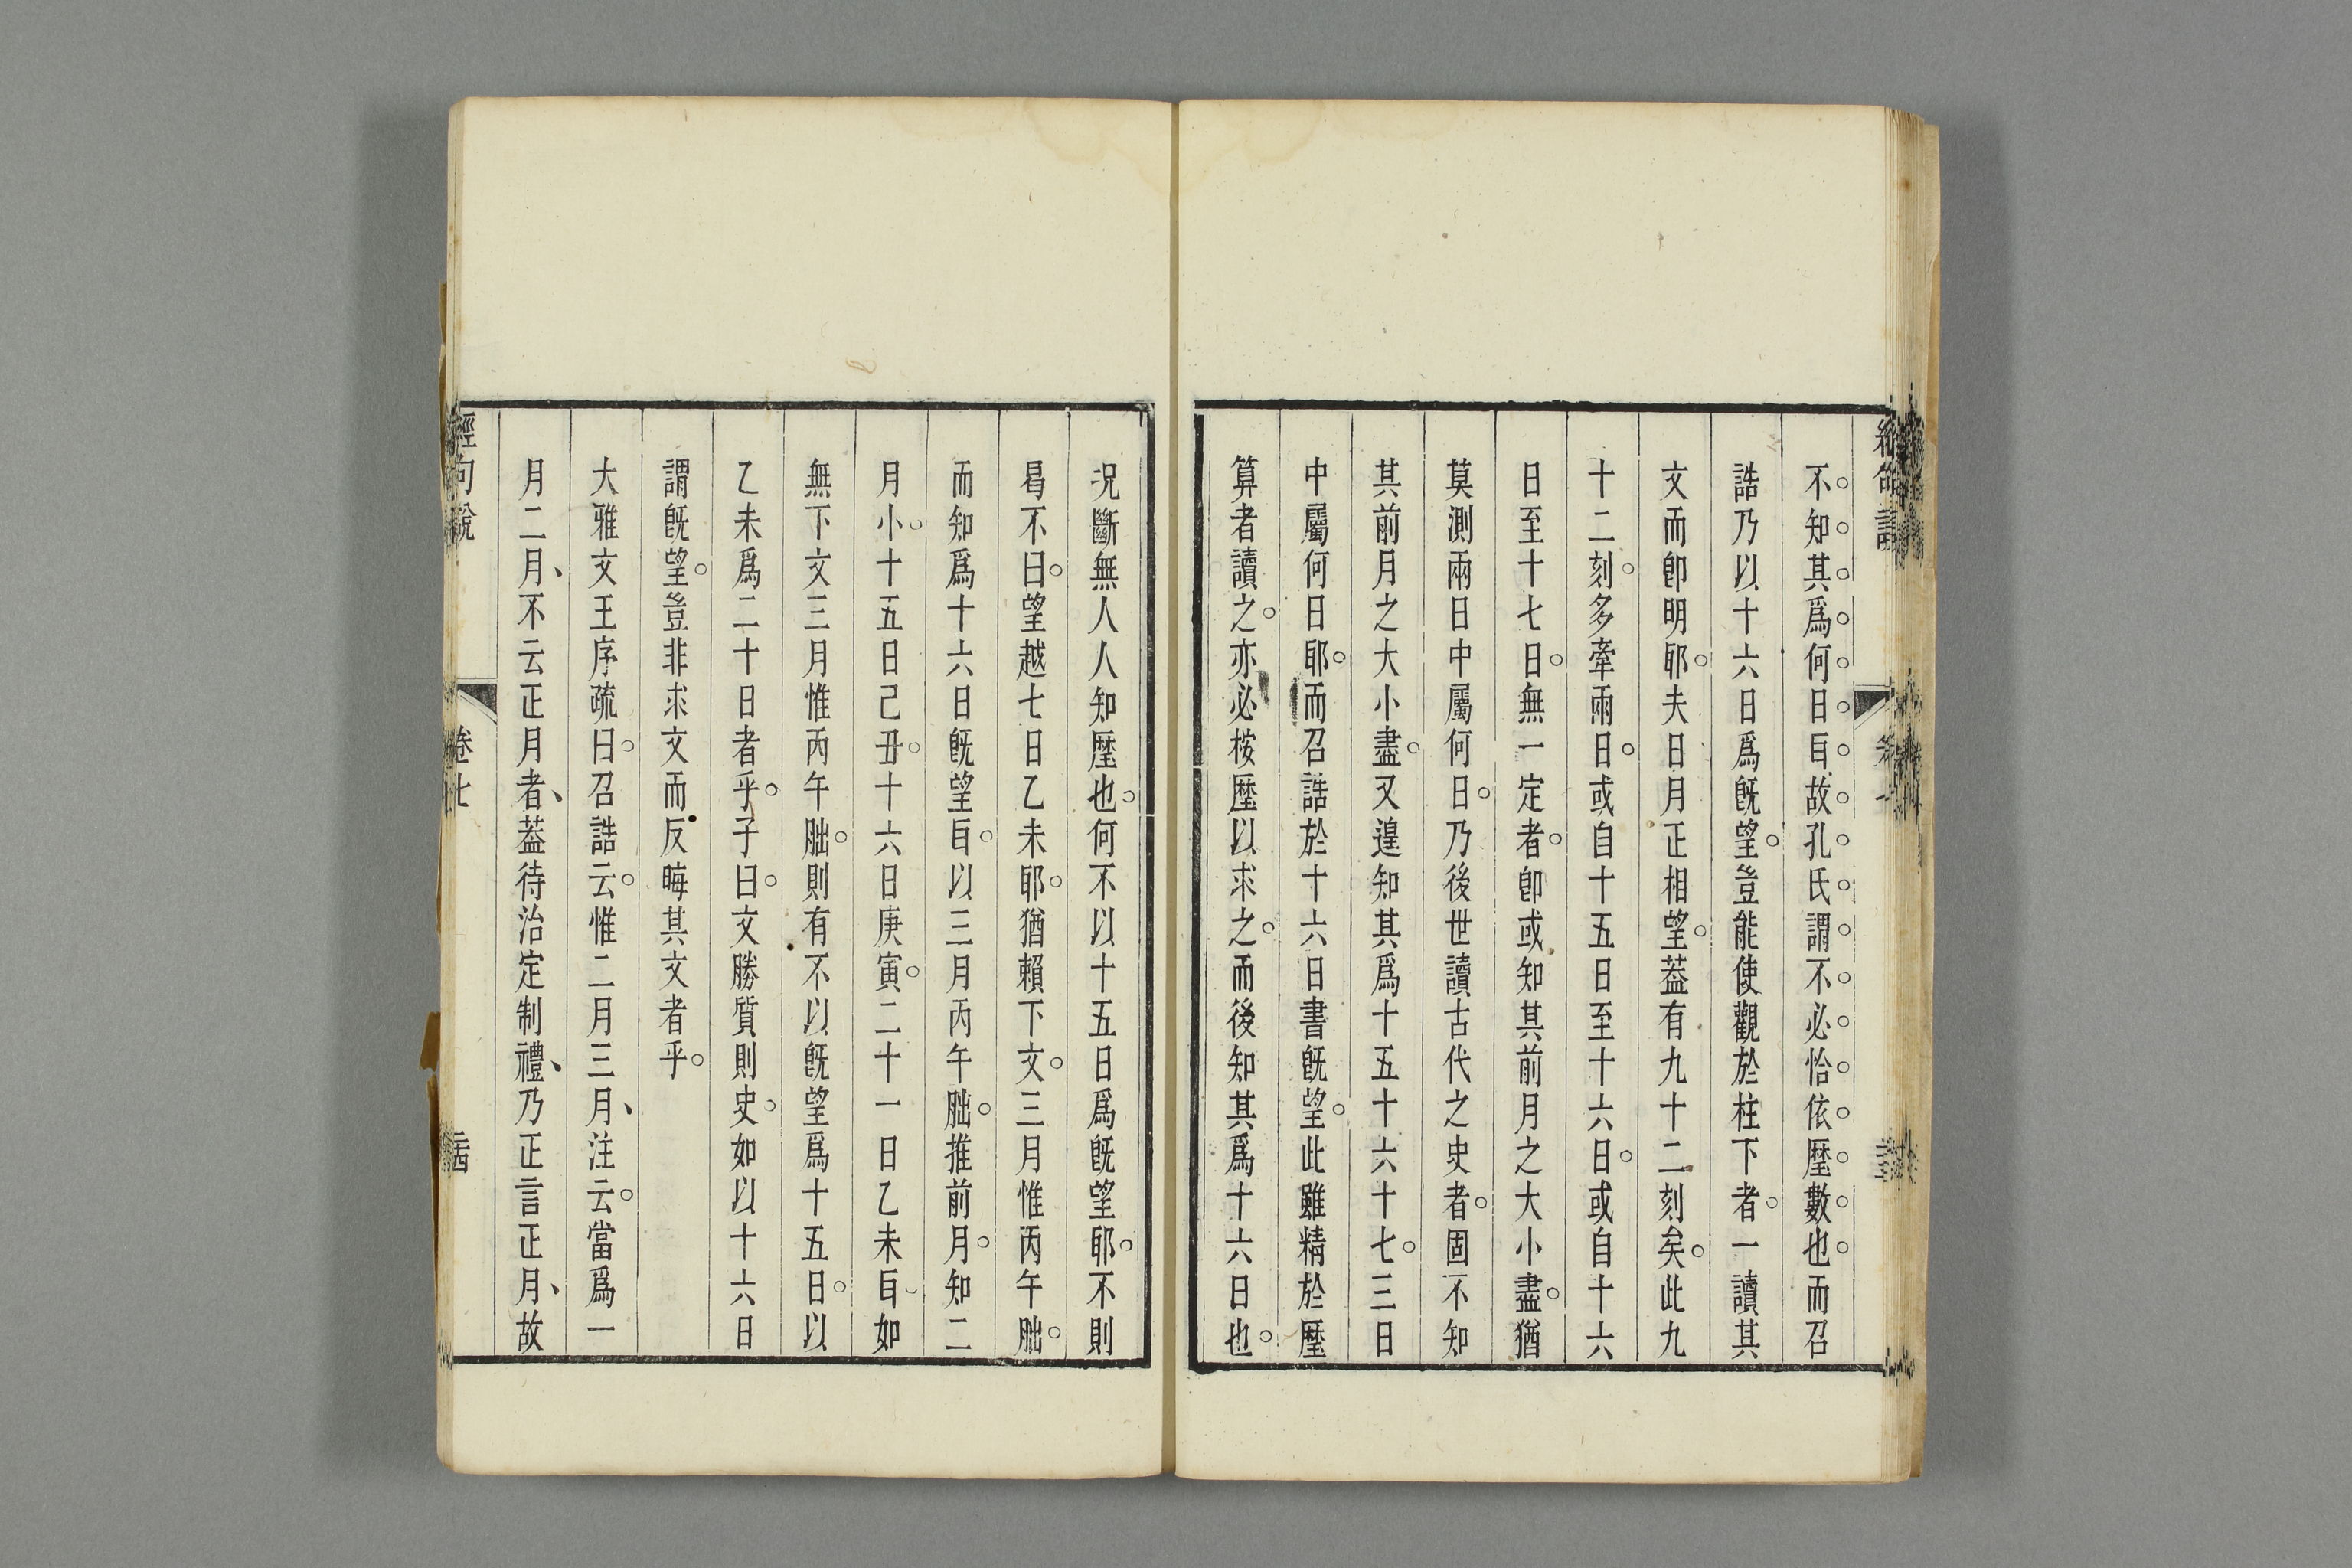 不知其爲何日㠯故孔氏謂不必恰依歷數也而召
誥乃以十六日爲旣望豈能使觀於柱下者一讀其
文而卽明耶夫日月正相望葢有九十二刻矣此九
十二刻多牽兩日或自十五日至十六日或自十六
日至十七日無一定者卽或知其前月之大小盡猶
莫測兩日中屬何日乃後世讀古代之史者固不知
其前月之大小盡又遑知其爲十五十六十七三日
中屬何日耶而召誥於十六日書旣望此雖精於歷
算者讀之亦必桉歷以求之而後知其爲十六日也
況斷無人人知歷也何不以十五日爲旣望耶不則
曷不曰望越七日乙未耶猶賴下文三月惟丙午朏
而知爲十六日旣望㠯以三月丙午朏推前月知二
月小十五日己丑十六日庚寅二十一日乙未㠯如
無下文三月惟丙午朏則有不以旣望爲十五日以
乙未爲二十日者乎子曰文勝質則史如以十六日
謂旣望豈非求文而反晦其文者乎
大雅文王序疏曰召誥云惟二月三月注云當爲一
月二月不云正月者葢待治定制禮乃正言正月故
經句說
卷七